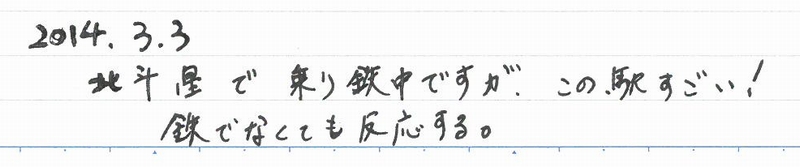 2014.3.3
北斗星で乗り鉄中ですが、この駅すごい！
鉄でなくても反応する。